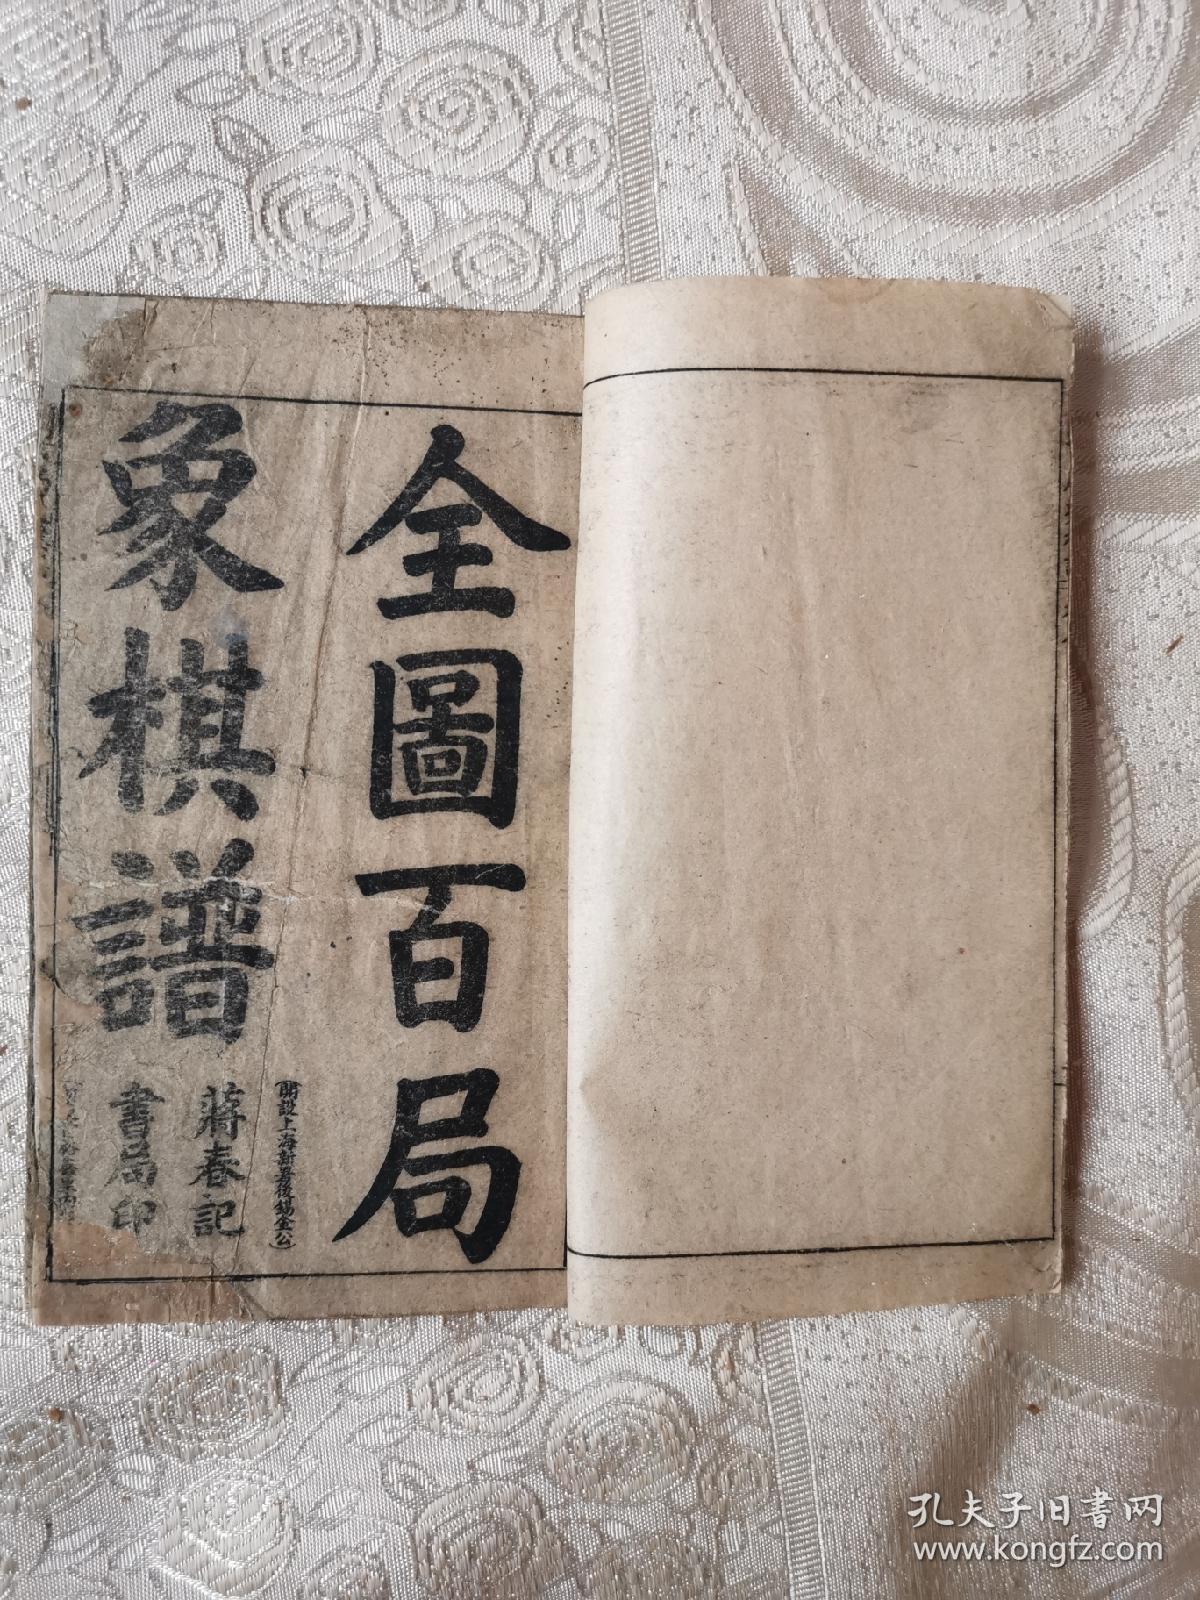 全圖百局
象棋譜
蔣春記
書局印
孔夫子旧书网
www.kongfz.com